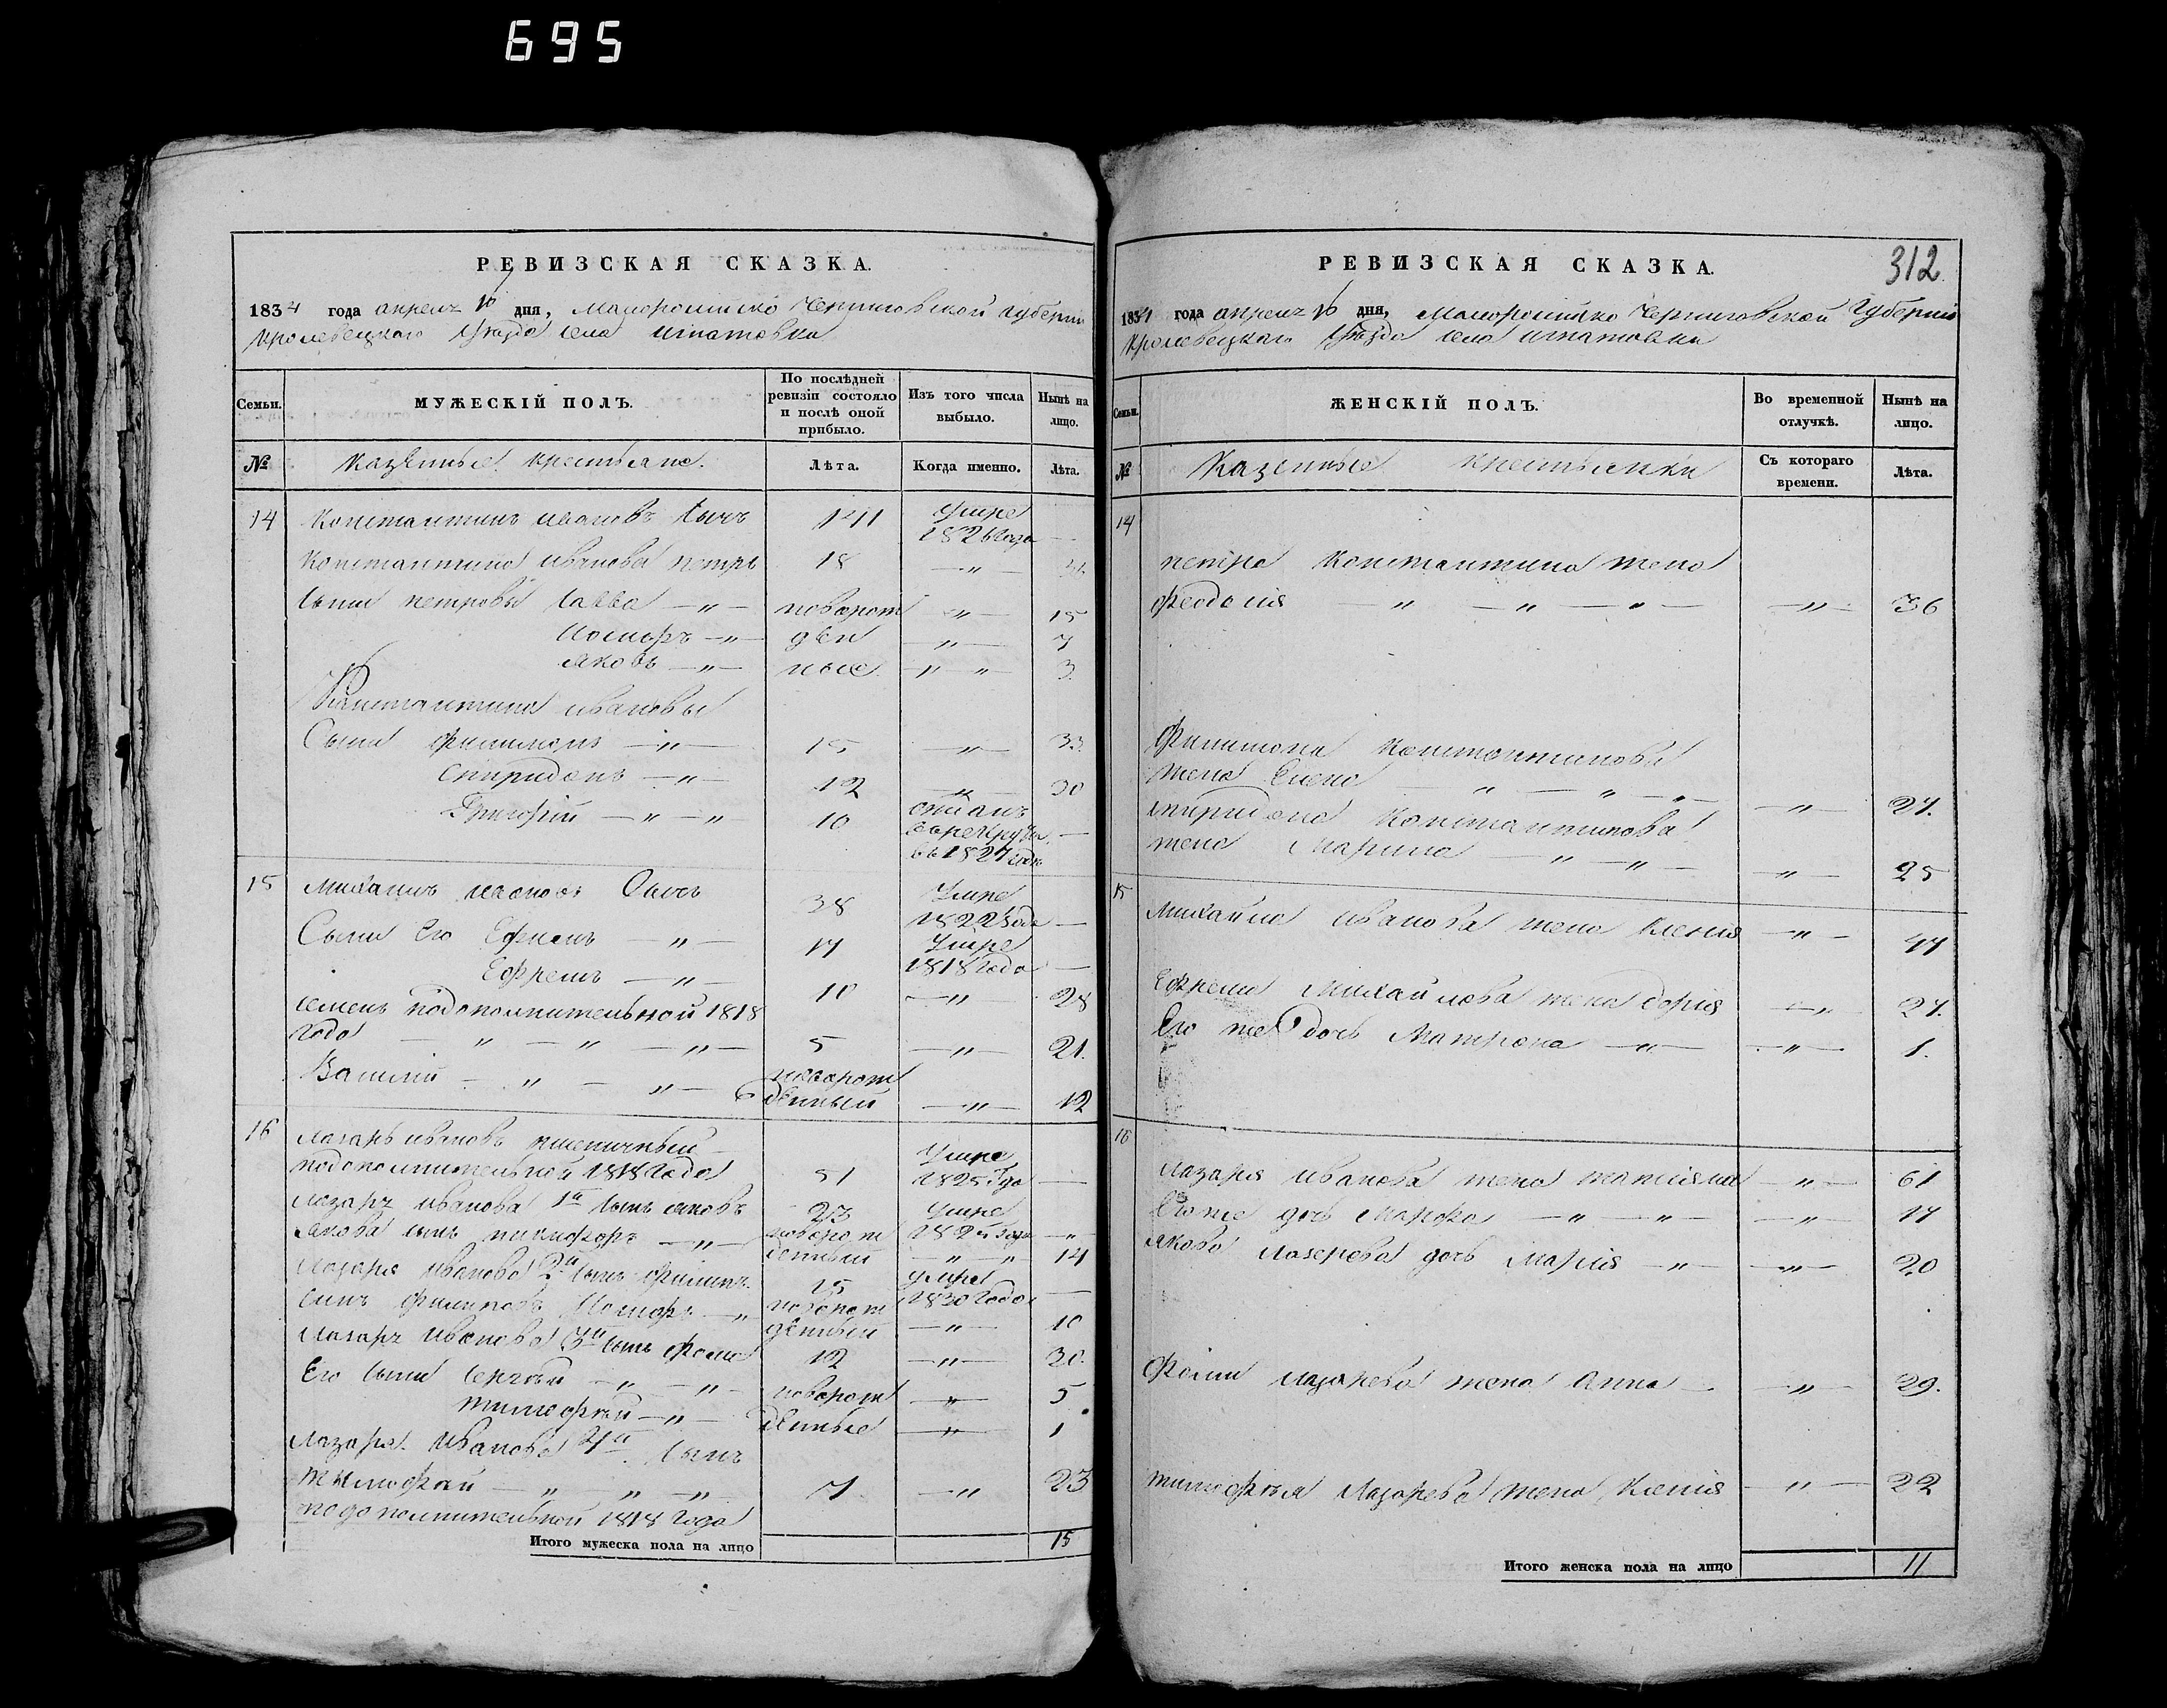 695
РЕВИЗСКАЯ СКАЗКА.
1834 года апреля 16 дня, Малоросийско Черниговской губерніи
Кролевецкаго Уезда села Игнатовки
Семьи.
МУЖЕСКІЙ ПОЛЪ.
По послѣдней ревизіи состояло и послѣ оной прибыло.
Изъ того числа выбыло.
Нынѣ на лицо.
№
Казенные крестьяне.
Лѣта.
Когда именно.
Лѣта.
14 Константинъ Ивановъ Сычъ 41 Умре 1826 года —
Константина Иванова петръ 18 — " —
Сыни петровы Савва — " — новорож " — 15
— " — ден " — 7
яковъ — " — ные — " " — 3
Константина Ивановы
Сыни филимонъ — " — 15 " — 33.
Спиридонъ — " — 12 — " — 30
Григорій — " — " — 10 отданъ въ рекруты въ 1827 годе —
15 Михаилъ Ивановъ Сычъ 38 Умре 1822 года —
Сыни Его — " — 17 Умре 1818 года —
Ефремъ — " — 10 — " — 28
семенъ подополнительной 1818
года — " — " — " — 5 — " — 21.
Василій — " — " — новорож денный — " — 12
16 Лазарь Ивановъ пшеничный
подополнительной 1818 года 51 Умре 1825 года —
Лазаря Иванова 1й сынъ яковъ 23 Умре
якова сынъ никифоръ — " — новорож денный " " 14
Лазаря Иванова 2й сынъ филипъ 15 умре 1830 года —
сынъ филиповъ — " новорож денный — " — 10
Лазаря Иванова 3й сынъ фома 12 — " — 30.
Его сыни Сергѣй — " — " — новорож — " — 5
тимофѣй — " — денные — " — 1
Лазаря Иванова 4й Сынъ
тимофѣй — " " — " — 7 — " 23
подополнительной 1818 года
Итого мужеска пола на лицо 15
РЕВИЗСКАЯ СКАЗКА.
312.
1834 года апреля 16 дня, Малоросийско Черниговской Губерніи
Кролевецкаго Уезда села Игнатовки
Семьи.
ЖЕНСКІЙ ПОЛЪ.
Во временной отлучкѣ.
Нынѣ на лицо.
№
Казенные крестьянки
Съ котораго времени.
Лѣта.
14
петра Константинова жена
Феодосія — " — " — " — — " — 36
Филимона Константинова
жена Елена — " — " — " — — " — 27.
спиридона Константинова
жена Марина — " — " — — " — 25
15
Михайла Иванова жена Ксенія — " — 47
Ефрема Михайлова жена дарія — " — 27.
Его же дочь Матрона — " — — " — 1.
16
Лазаря Иванова жена татіяна — " — 61
Его же дочь Марфа — " — " — — " — 17
якова Лазерева дочь Марія — " — — " — 20
Фомы Лазарева жена Анна — — " — 29.
тимофѣя Лазарева жена Ксенія — " — 22
Итого женска пола на лицо 11